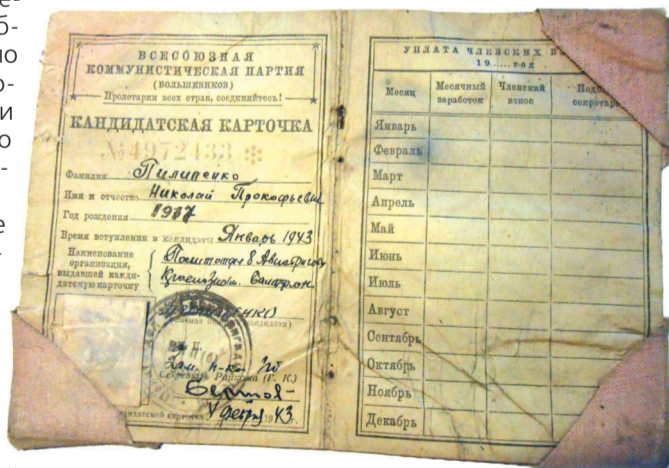 е-
б-
но
о-
и
о
-
е
-
ВСЕСОЮЗНАЯ
КОММУНИСТИЧЕСКАЯ ПАРТИЯ
(БОЛЬШЕВИКОВ)
Пролетарии всех стран, соединяйтесь!
КАНДИДАТСКАЯ КАРТОЧКА
№ 4972433
Фамилия Пилипенко
Имя и отчество Николай Прокофьевич
Год рождения 1917
Время вступления в кандидаты Январь 1943
Наименование организации, выдавшей кандидатскую карточку
8 Авиабригады
(Г. К.)
1943 г.
УПЛАТА ЧЛЕНСКИХ В
19.....год
Месяц
Месячный заработок
Членский взнос
секретаря
Январь
Февраль
Март
Апрель
Май
Июнь
Июль
Август
Сентябрь
Октябрь
Ноябрь
Декабрь